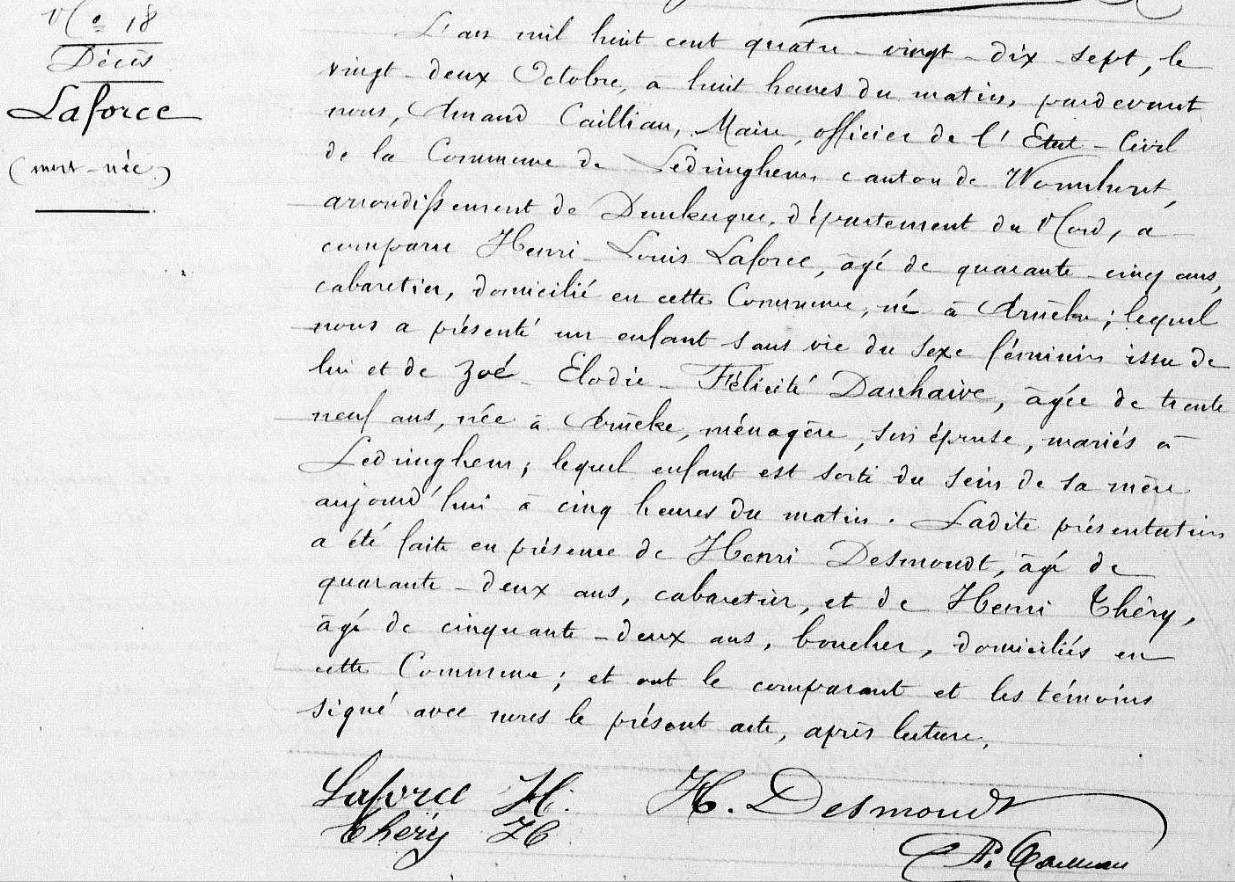 No 18
Décès
Laforce
(mort-née)
L'an mil huit cent quatre-vingt-dix-sept, le
vingt-deux Octobre, à huit heures du matin, pardevant
nous, Amand Cailliau, Maire, officier de l'Etat-Civil
de la Commune de Ledringhem, canton de Wormhout,
arrondissement de Dunkerque, département du Nord, a
comparu Henri-Louis Laforce, âgé de quarante-cinq ans,
cabaretier, domicilié en cette Commune, né à Arnèke; lequel
nous a présenté un enfant sans vie du sexe féminin issu de
lui et de Zoé-Elodie-Félicité Danhaive, âgée de trente
neuf ans, née à Arnèke, ménagère, son épouse, mariés à
Ledringhem; lequel enfant est sorti du sein de sa mère
aujourd'hui à cinq heures du matin. Ladite présentation
a été faite en présence de Henri Desmoudt, âgé de
quarante-deux ans, cabaretier, et de Henri Théry,
âgé de cinquante-deux ans, boucher, domiciliés en
cette Commune; et ont le comparant et les témoins
signé avec nous le présent acte, après lecture.
Laforce H. H. Desmoudt
Théry H
A. Cailliau